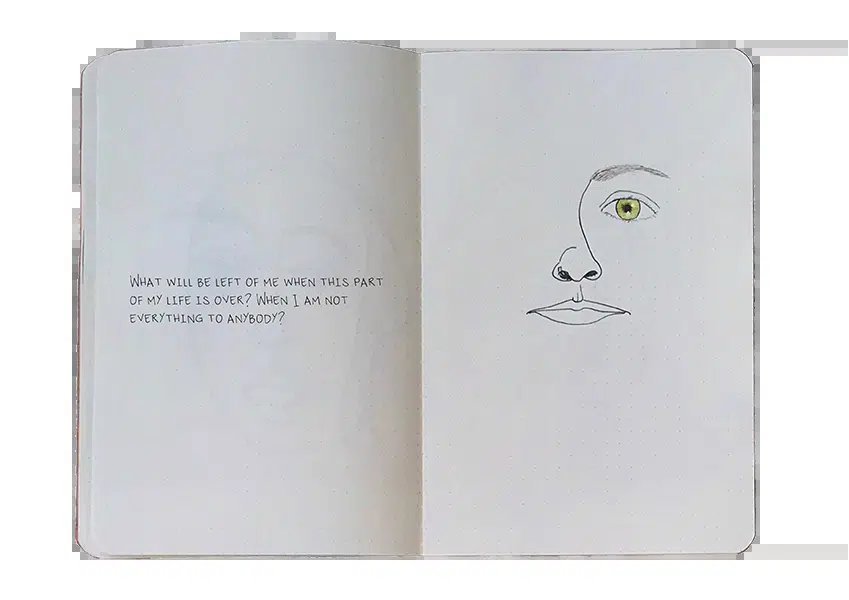 WHAT WILL BE LEFT OF ME WHEN THIS PART
OF MY LIFE IS OVER? WHEN I AM NOT
EVERYTHING TO ANYBODY?